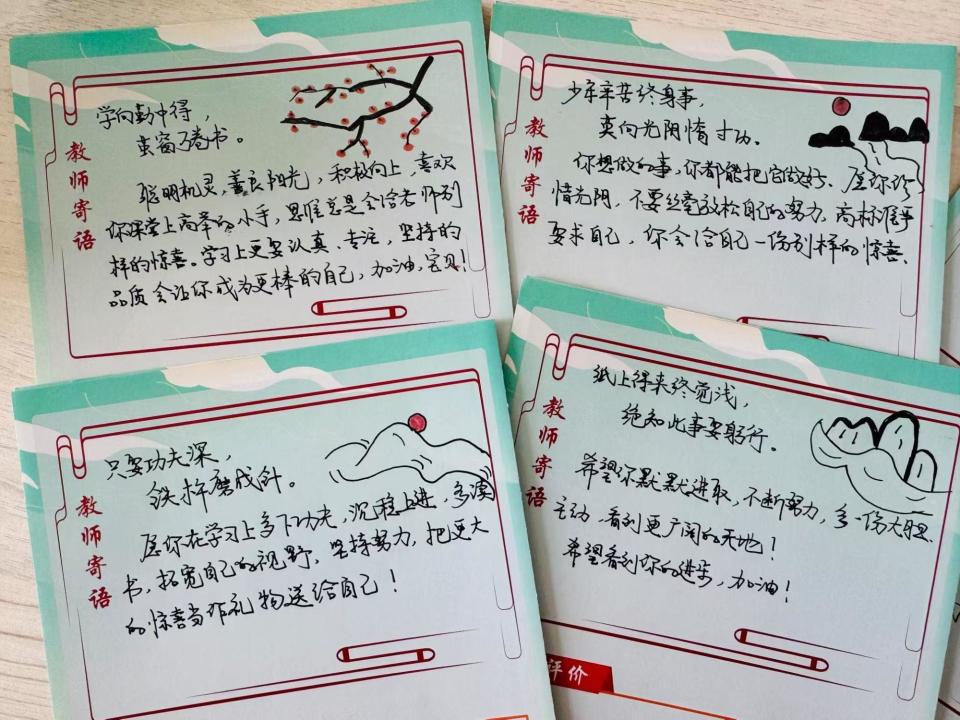 教师寄语
学向勤中得，
萤窗万卷书。
聪明机灵，善良阳光，积极向上，喜欢
你课堂上高举的小手，思维总是会给老师别
样的惊喜。学习上更要认真、专注，坚持的
品质会让你成为更棒的自己，加油，宝贝！
教师寄语
少年辛苦终身事，
莫向光阴惰寸功。
你想做的事，你都能把它做好。愿你珍
惜光阴，不要丝毫放松自己的努力，高标准
要求自己，你会给自己一份别样的惊喜。
教师寄语
只要功夫深，
铁杵磨成针。
愿你在学习上多下功夫，沉稳上进，多读
书，拓宽自己的视野，坚持努力，把更大
的惊喜当作礼物送给自己！
教师寄语
纸上得来终觉浅，
绝知此事要躬行。
希望你默默进取，不断努力，多一份大胆
主动，看到更广阔的天地！
希望看到你的进步，加油！
评价